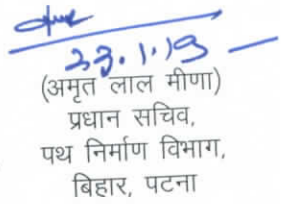 23.1.19
(अमृत लाल मीणा)
प्रधान सचिव,
पथ निर्माण विभाग,
बिहार, पटना